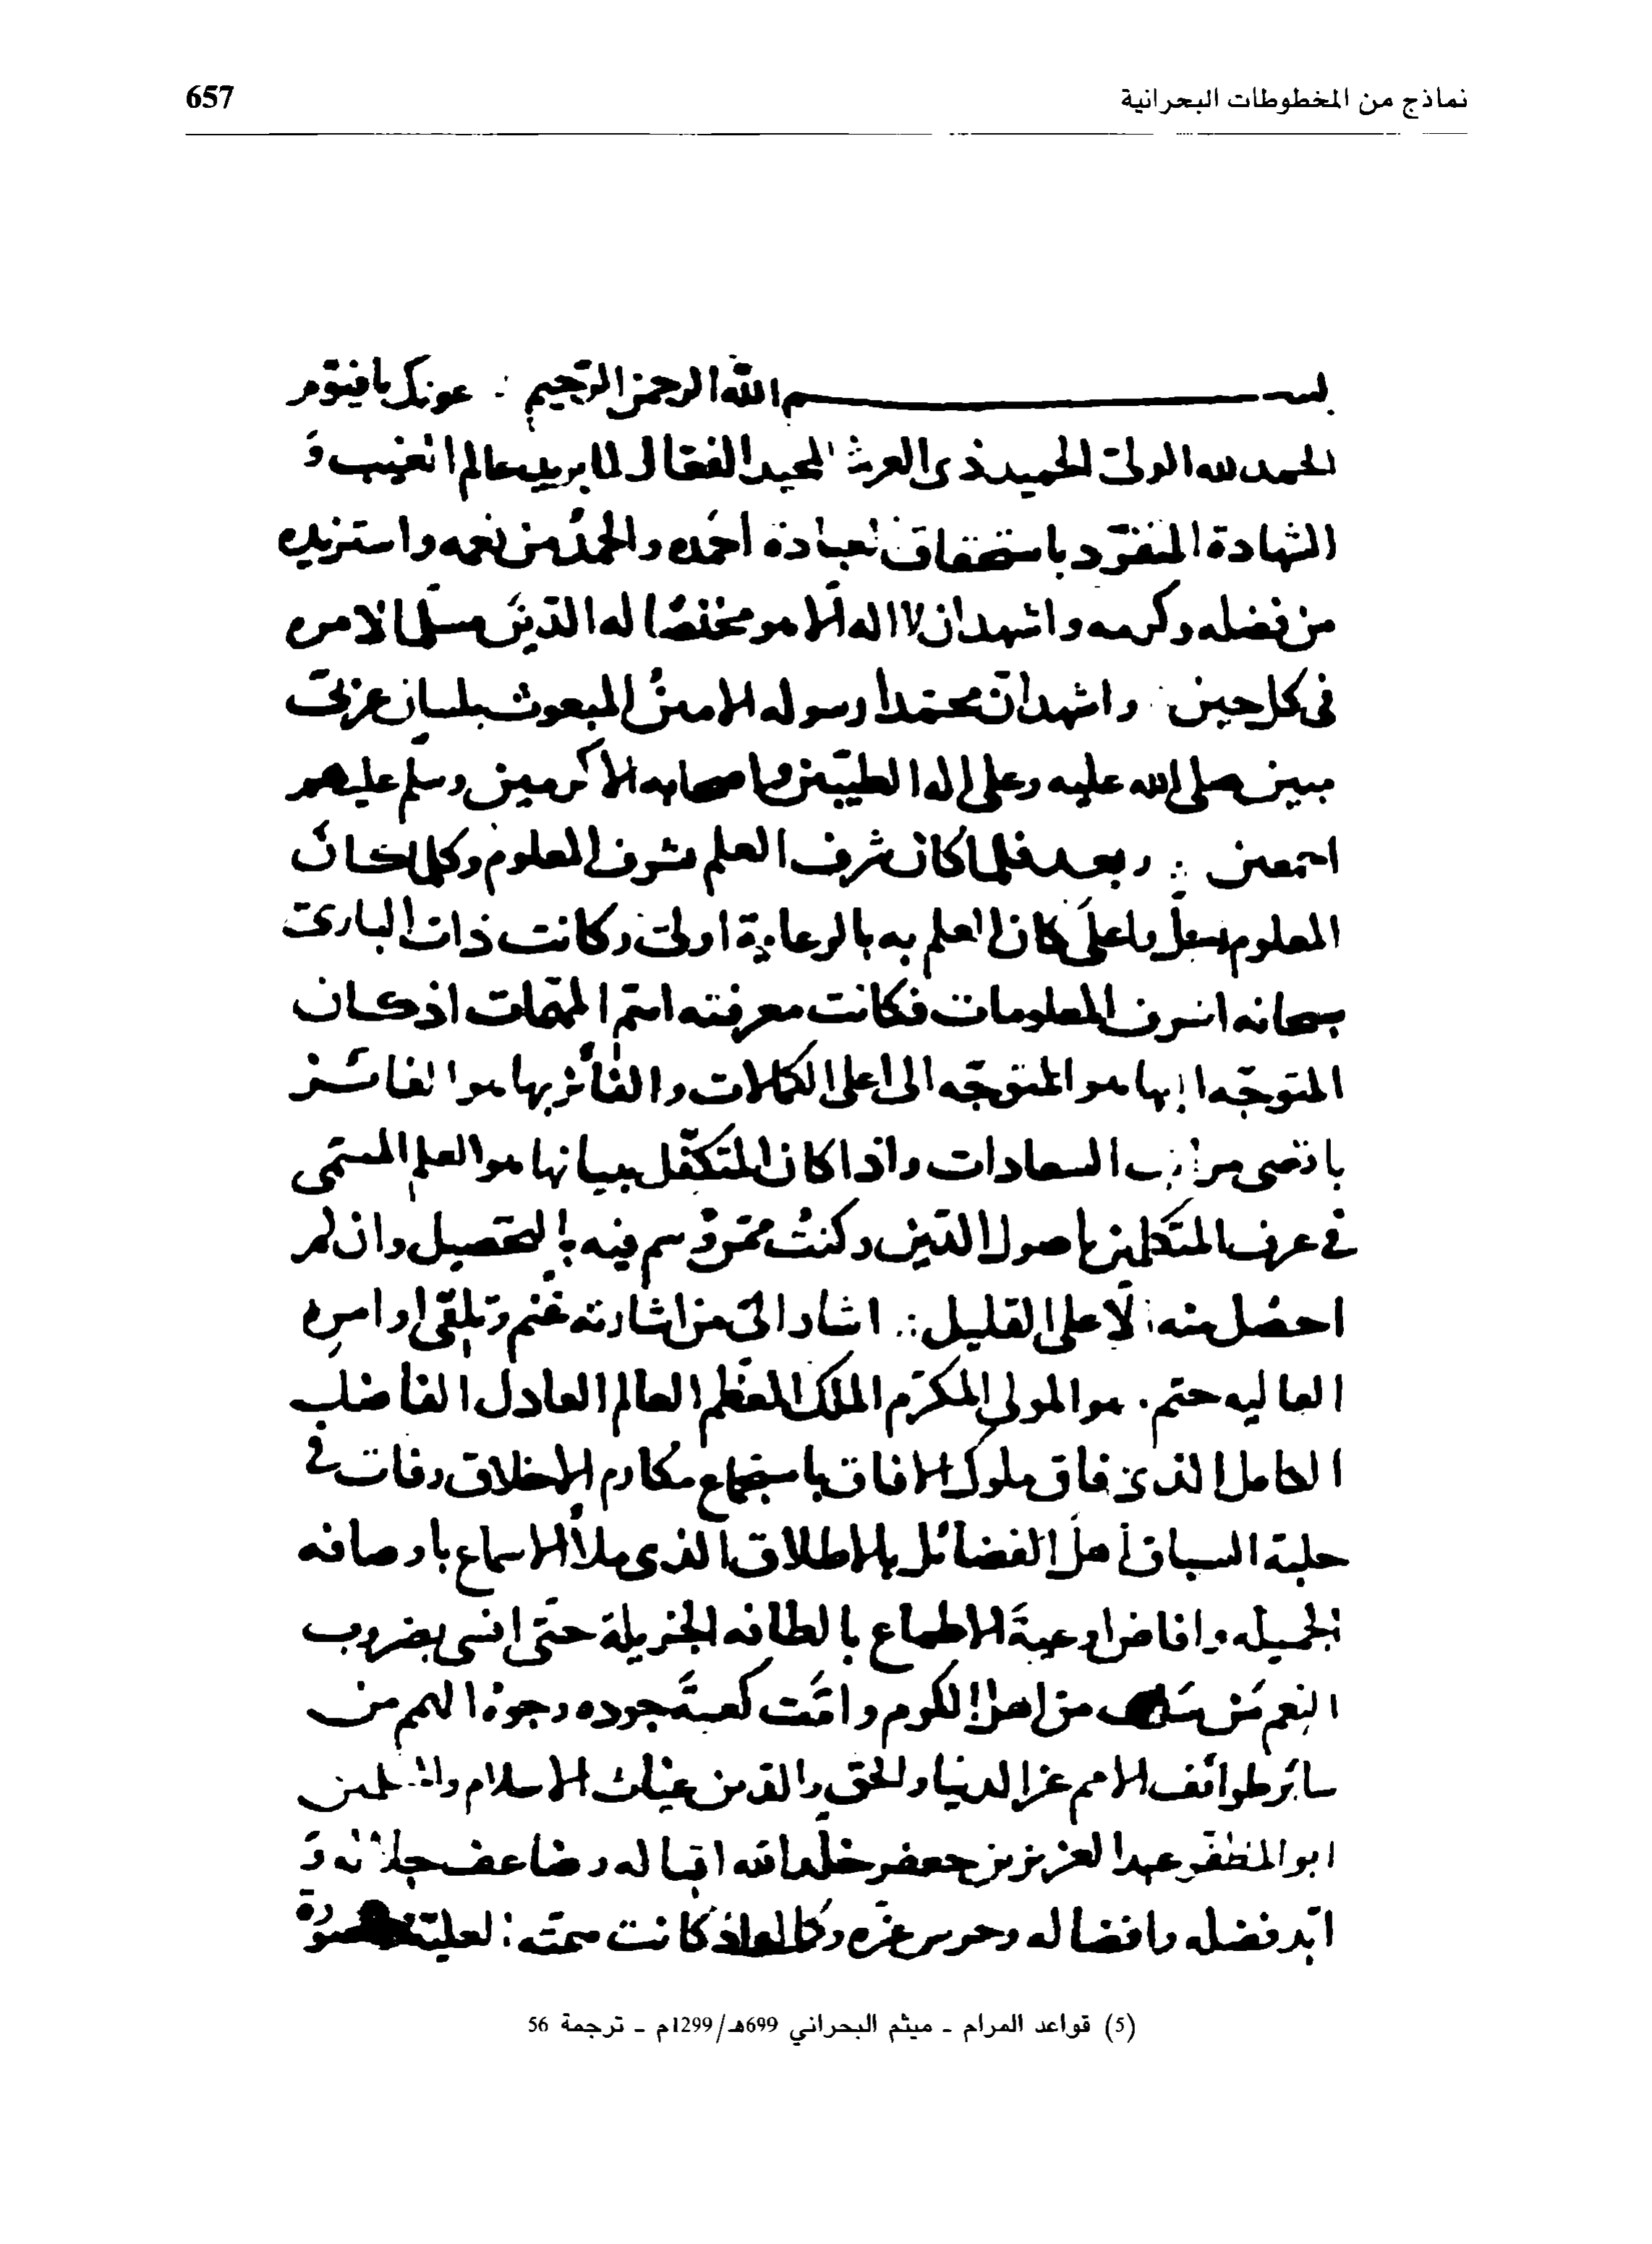 نماذج من المخطوطات البحرانية
657
بسم الله الرحمن الرحيم عونك يا قيوم
الحمد لله الولى الحميد ذى العرش المجيد الفعال لما يريد عالم الغيب و
الشهادة المتفرد باستحقاق العبادة احمده والحمد من نعمه واستزيده
من فضله وكرمه واشهد ان لا اله الا هو مخلصا له الدين مسلما لامره
فى كل حين واشهد ان محمدا رسوله الامين المبعوث بلسان عربى
مبين صلى الله عليه وعلى اله الطيبين واصحابه الاكرمين وسلم عليهم
اجمعين وبعد فلما كان شرف العلم بشرف المعلوم وكلما كان
المعلوم اجل واعلى كان العلم به بالرعاية اولى وكانت ذات البارى
سبحانه اشرف المعلومات فكانت معرفته اهم المهمات اذ كان
المتوجه اليها هو المتوجه الى اعلى الكمالات والفائز بها هو الفائز
باقصى مراتب السعادات واذا كان المتكفل ببيانها هو العلم المسمى
فى عرف المتكلمين باصول الدين وكنت ممن وسم فيه بالتحصيل وان لم
احصل منه الا على القليل اشار الى من اشارته غنم وتلقى اوامره
العاليه حتم هو المولى المكرم الملك المعظم العالم العادل الفاضل
الكامل الذى فاق ملوك الافاق باستجماع مكارم الاخلاق وفات فى
حلبة السباق اهل الفضائل بالاطلاق الذى ملأ الاسماع باوصافه
الجميله وافاض اوعية الاطماع بالطافه الجزيلة حتى انسى بضروب
النعم من من اهل الكرم وامت كعبة جوده وجوه الهمم من
سائر طوائف الامم عز الدنيا والحق والدين غياث الاسلام والمسلمين
ابو المظفر عبد العزيز بن جعفر خلد الله اقباله وضاعف جلاله و
ابد فضله وافضاله وحرس عزه وكماله اذ كانت همته العلية
(5) قواعد المرام ـ ميثم البحراني 699هـ/1299م ـ ترجمة 56